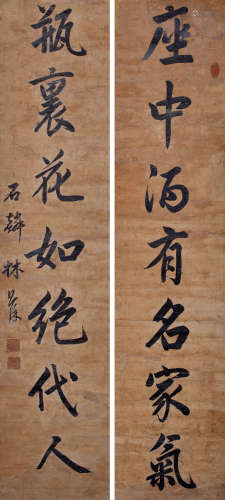 座中酒有名家氣
瓶裏花如絕代人
石韓林